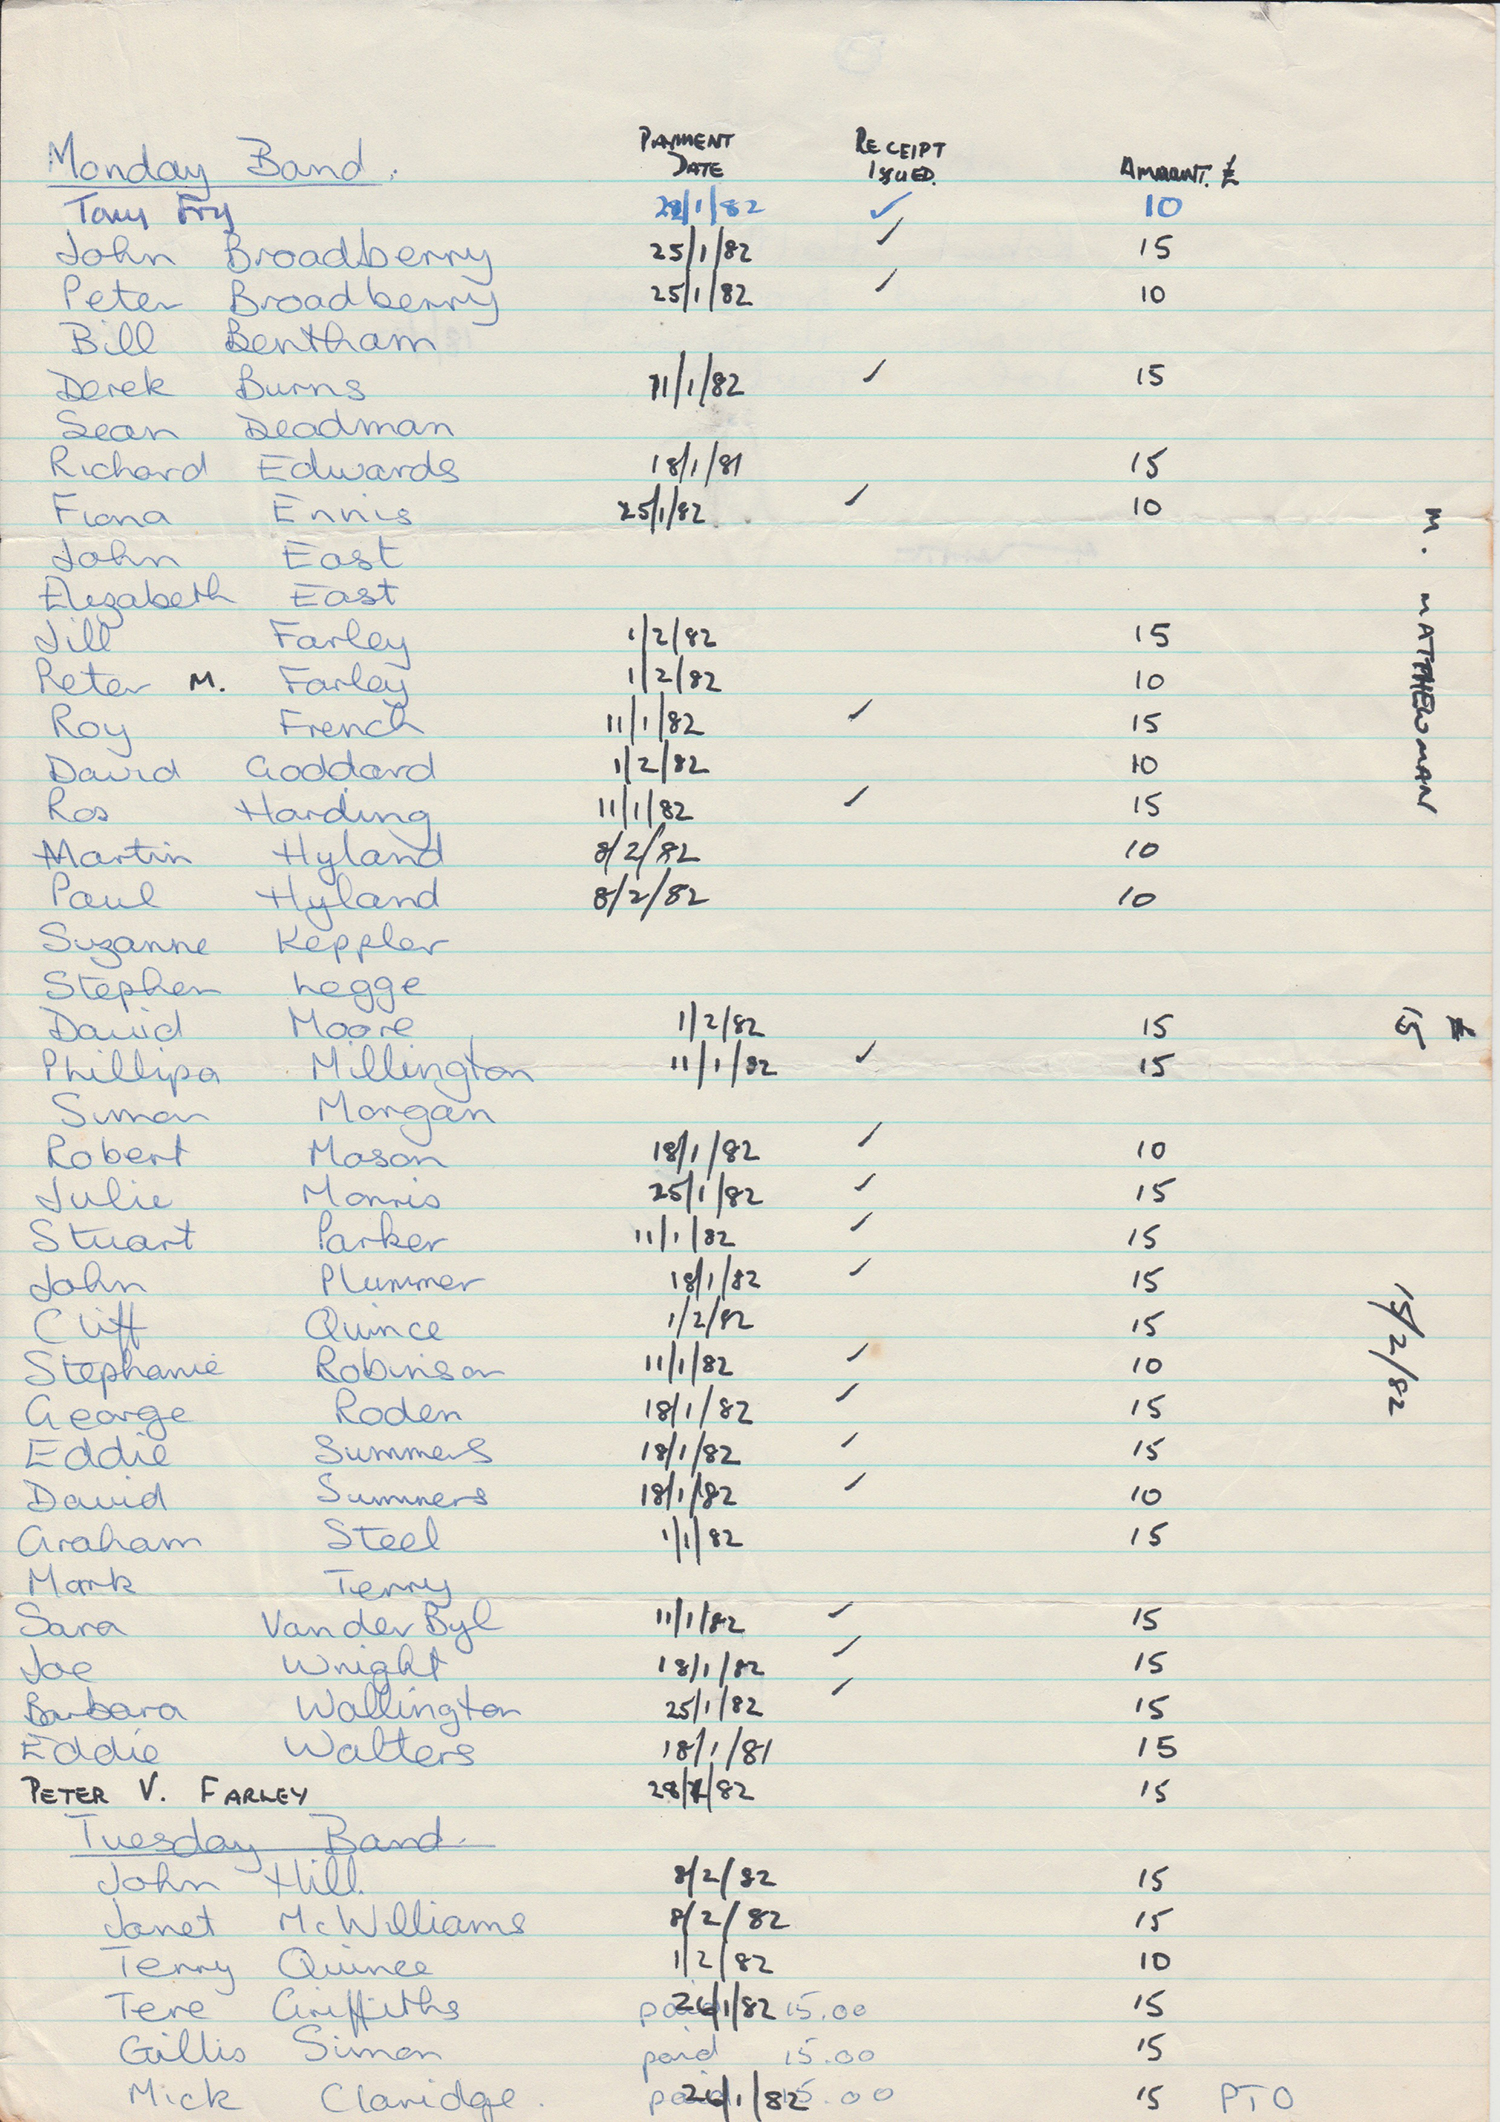 PAYMENT DATE RECEIPT ISSUED. AMOUNT. £
Monday Band.
Tony Fry 28/1/82 ✓ 10
John Broadberry 25/1/82 ✓ 15
Peter Broadberry 25/1/82 ✓ 10
Bill Bentham
Derek Burns 11/1/82 ✓ 15
Sean Deadman
Richard Edwards 18/1/81 15
Fiona Ennis 25/1/82 ✓ 10
John East
Elizabeth East
Jill Farley 1/2/82 15
Peter M. Farley 1/2/82 10
Roy French 11/1/82 ✓ 15
David Goddard 1/2/82 10
Ros Harding 11/1/82 ✓ 15
Martin Hyland 8/2/82 10
Paul Hyland 8/2/82 10
Suzanne Keppler
Stephen Legge
David Moore 1/2/82 15
Phillipa Millington 11/1/82 ✓ 15
Simon Morgan
Robert Mason 18/1/82 ✓ 10
Julie Morris 25/1/82 ✓ 15
Stuart Parker 11/1/82 ✓ 15
John Plummer 18/1/82 ✓ 15
Cliff Quince 1/2/82 15
Stephanie Robinson 11/1/82 ✓ 10
George Roden 18/1/82 ✓ 15
Eddie Summers 18/1/82 ✓ 15
David Summers 18/1/82 ✓ 10
Graham Steel 1/1/82 15
Mark Terry
Sara Van der Byl 11/1/82 ✓ 15
Joe Wright 18/1/82 ✓ 15
Barbara Wallington 25/1/82 ✓ 15
Eddie Walters 18/1/81 15
PETER V. FARLEY 28/1/82 15
Tuesday Band
John Hill 8/2/82 15
Janet McWilliams 8/2/82 15
Terry Quince 1/2/82 10
Tere Griffiths paid 26/1/82 15.00 15
Gillis Simon paid 15.00 15
Mick Claridge. paid 26/1/82 15.00 15 PTO
M. MATTHEWMAN £15 15/2/82